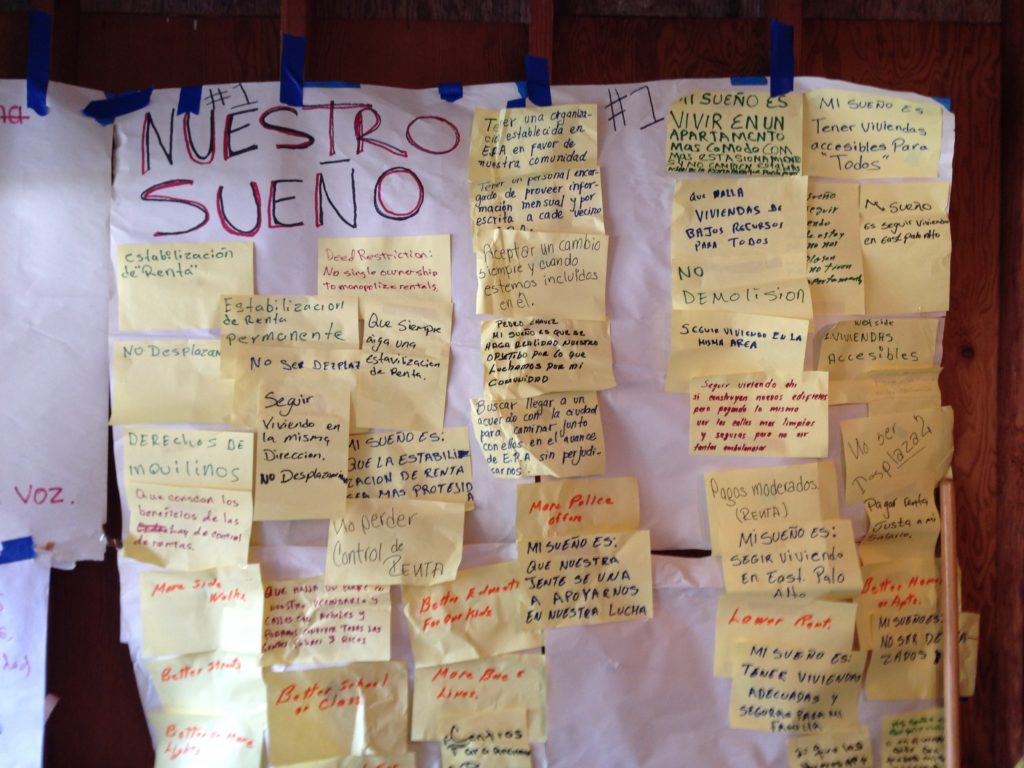 VOZ.
#1
NUESTRO
SUEÑO
Estabilización
de "Renta"
Deed Restriction:
No single ownership
to monopolize rentals.
Estabilizacion
de Renta
permonente
Que siempre
aiga una
estavilizacion
de Renta.
No Desplazan
No Ser DEZPLAZ
Seguir
Viviendo en
la misma
Direccion.
No Desplazan
DERECHOS DE
inquilinos
Que conoscan los
beneficios de las
ley de control
de rentas.
MI SUEÑO ES:
QUE LA ESTABILI
ZACION DE RENTA
SEA MAS PROTEJIDA
No perder
Control de
RENTA
More Side
Walks.
Better Streets
Better or More
Lights.
Better School
or Class
Better Edu
For Our Kids
More Bus
Lines.
Centros
Tener una organiza-
ción establecida en
E.P.A en favor de
nuestra comunidad
Tener un personal encar-
gado de proveer infor-
mación mensual y por
escrita a cade vecino
Aceptar un cambio
siempre y cuando
estemos incluidos
en él.
PEDRO CHAVEZ
MI SUEÑO ES QUE SE
HAGA REALIDAD NUESTRO
OBJETIBO POR LO QUE
LUCHAMOS POR MI
COMUNIDAD
Buscar llegar a un
acuerdo con la ciudad
para caminar junto
con ellos en el avance
de E.P.A sin perjudi-
carnos.
More Police
MI SUEÑO ES:
QUE NUESTRA
JENTE SE UNA
A APOYARNOS
EN NUESTRA LUCHA
#1
MI SUEÑO ES
VIVIR EN UN
APARTAMENTO
MAS COMODO CON
MAS ESTASIONAMIENTO
MI SUEÑO ES
Tener Viviendas
accesibles Para
"Todos"
QUE HALLA
VIVIENDAS DE
BAJOS RECURSOS
PARA TODOS
Mi SUEÑO
Es seguir Viviendo
en East Palo Alto
NO
DEMOLISION
SEGUIR VIVIENDO EN LA
MISMA AREA
VIVIENDAS
Accesibles
Seguir viviendo ahi
si construyen nuevos edificios
pero pagando lo mismo
ver las calles mas limpias
y seguras para no oir
tantas ambulancias
No ser
Desplazad
Pagar renta
Justa a mi
Salario.
Pagos moderados.
(RENTA)
MI SUEÑO ES:
SEGIR Viviendo
En East. Palo
Alto
Lower Rent.
MI SUEÑO ES:
TENER VIVIENDAS
ADECUADAS Y
SEGURAS PARA MI
FAMILIA
Better Homes
or Apts.
MI SUEÑO ES:
NO SER DE
ZADOS